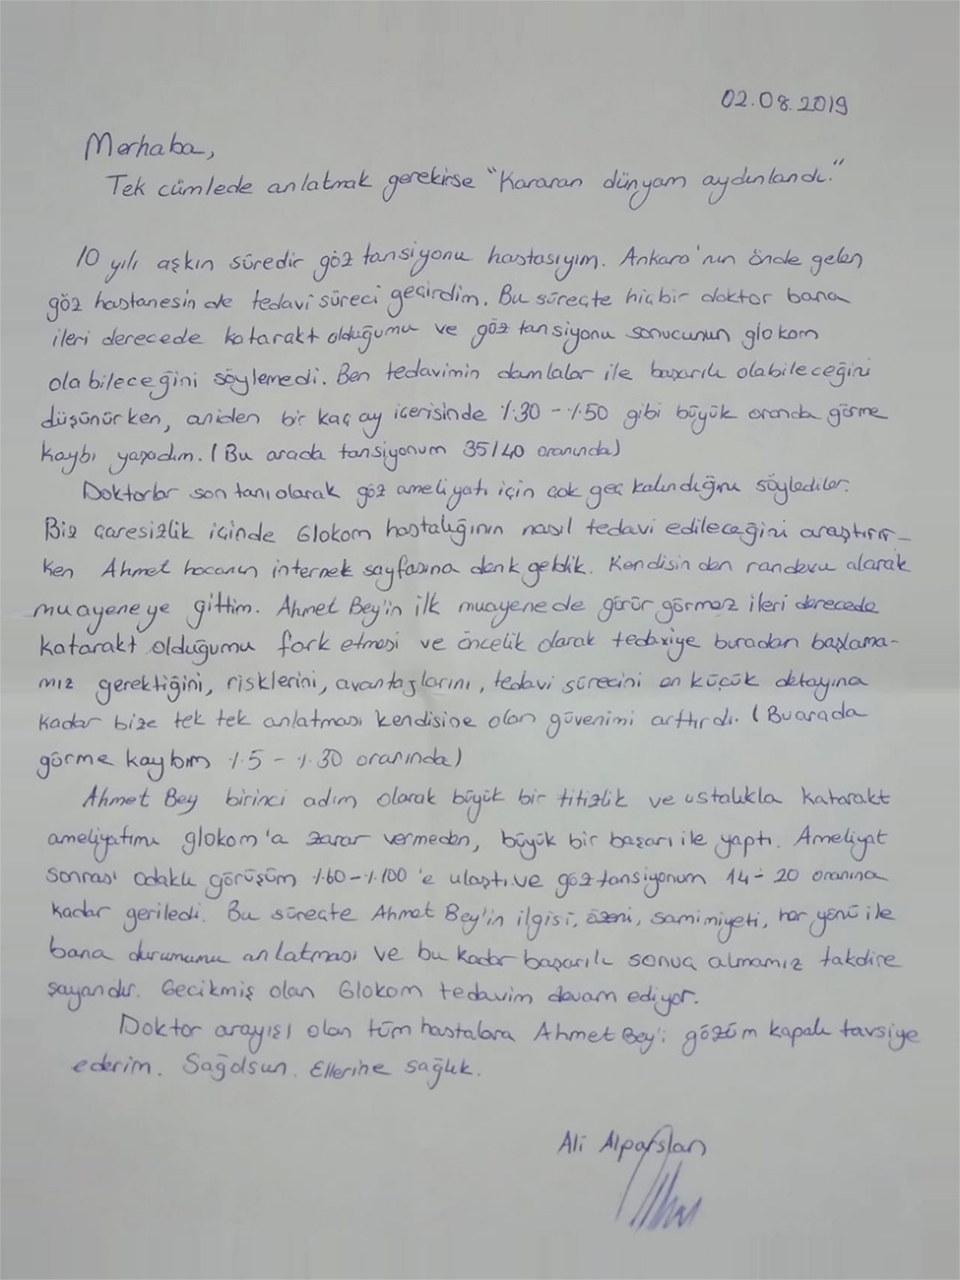 02.08.2019
Merhaba,
Tek cümlede anlatmak gerekirse "Kararan dünyam aydınlandı."
10 yılı aşkın süredir göz tansiyonu hastasıyım. Ankara'nın önde gelen
göz hastanesinde tedavi süreci geçirdim. Bu süreçte hiçbir doktor bana
ileri derecede katarakt olduğumu ve göz tansiyonu sonucunun glokom
olabileceğini söylemedi. Ben tedavimin damlalar ile başarılı olabileceğini
düşünürken, aniden bir kaç ay içerisinde %30 - %50 gibi büyük oranda görme
kaybı yaşadım. (Bu arada tansiyonum 35/40 oranında)
Doktorlar son tanı olarak göz ameliyatı için çok geç kalındığını söylediler.
Biz çaresizlik içinde Glokom hastalığının nasıl tedavi edileceğini araştırır-
ken Ahmet hocanın internek sayfasına denk geldik. Kendisinden randevu alarak
muayeneye gittim. Ahmet Bey'in ilk muayenede görür görmez ileri derecede
katarakt olduğumu fark etmesi ve öncelik olarak tedaviye buradan başlama-
mız gerektiğini, risklerini, avantajlarını, tedavi sürecini en küçük detayına
kadar bize tek tek anlatması kendisine olan güvenimi arttırdı. (Bu arada
görme kaybım %5 - %30 oranında)
Ahmet Bey birinci adım olarak büyük bir titizlik ve ustalıkla katarakt
ameliyatımı glokom'a zarar vermeden, büyük bir başarı ile yaptı. Ameliyat
sonrası odaklı görüşüm %60-%100'e ulaştı ve göz tansiyonum 14-20 oranına
kadar geriledi. Bu süreçte Ahmet Bey'in ilgisi, özeni, samimiyeti, her yönü ile
bana durumumu anlatması ve bu kadar başarılı sonuç almamız takdire
şayandır. Gecikmiş olan Glokom tedavim devam ediyor.
Doktor arayışı olan tüm hastalara Ahmet Bey'i gözüm kapalı tavsiye
ederim. Sağolsun. Ellerine sağlık.
Ali Alparslan